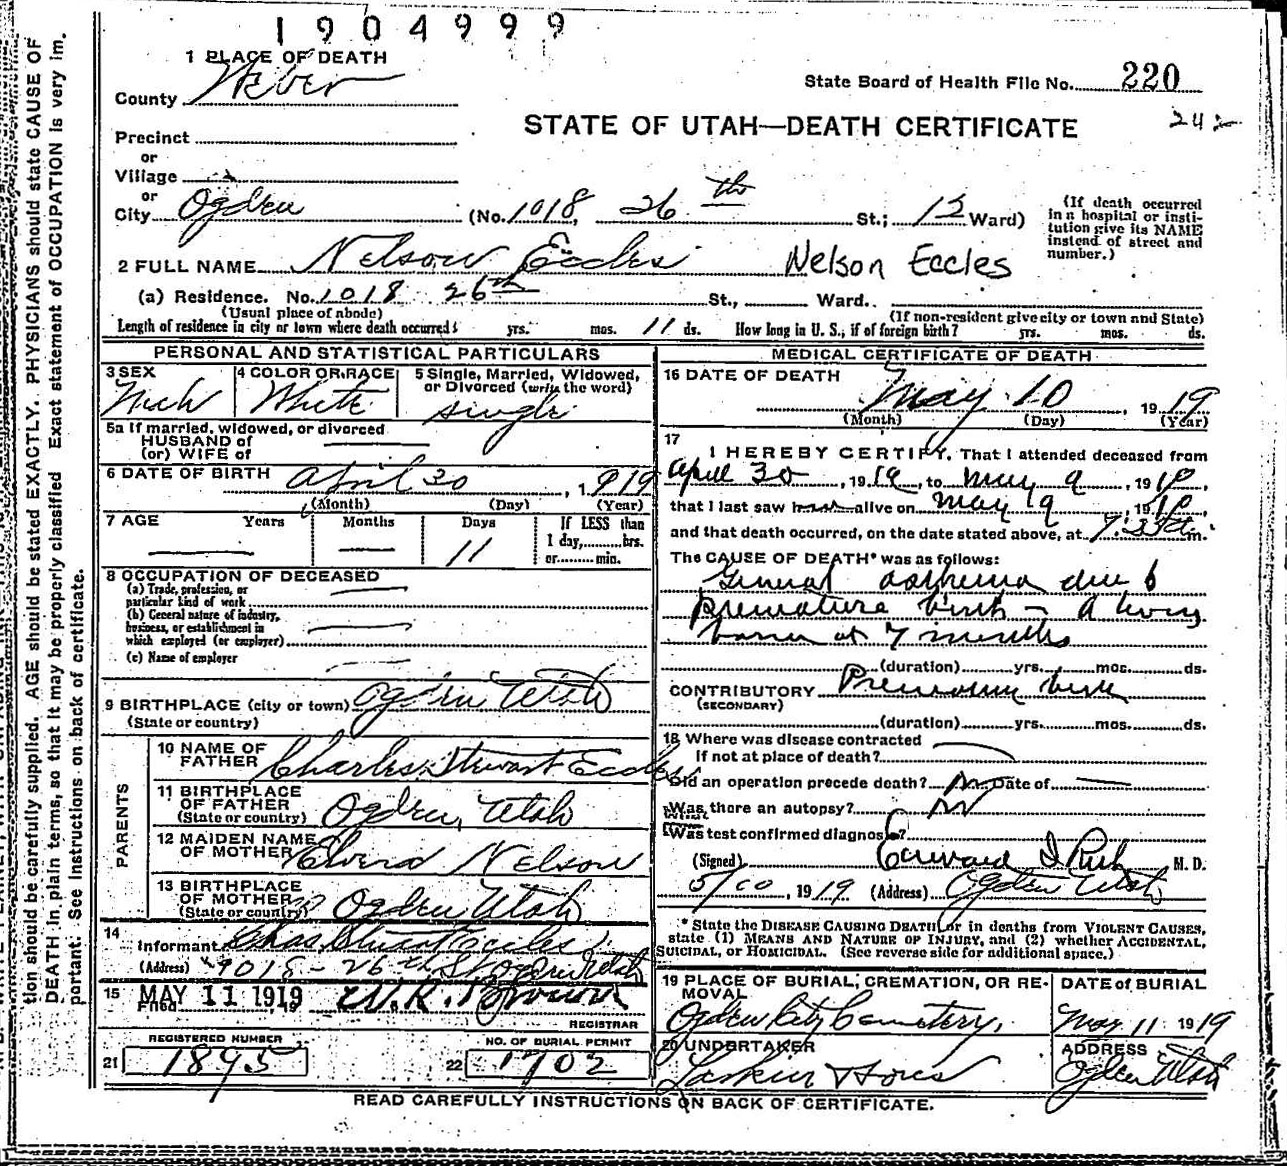 1904999
1 PLACE OF DEATH
County Weber
State Board of Health File No. 220
242
STATE OF UTAH—DEATH CERTIFICATE
Precinct
or
Village
or
City Ogden (No. 1018, 26th St.; 13 Ward)
(If death occurred in a hospital or institution give its NAME instead of street and number.)
2 FULL NAME Nelson Eccles Nelson Eccles
(a) Residence. No. 1018 26th St., Ward.
(Usual place of abode) (If non-resident give city or town and State)
Length of residence in city or town where death occurred yrs. mos. 11 ds. How long in U. S., if of foreign birth? yrs. mos. ds.
PERSONAL AND STATISTICAL PARTICULARS
3 SEX
4 COLOR OR RACE White
5 Single, Married, Widowed, or Divorced (write the word) single
5a If married, widowed, or divorced
HUSBAND of
(or) WIFE of
6 DATE OF BIRTH April 30, 1919
(Month) (Day) (Year)
7 AGE Years Months Days 11 If LESS than 1 day, hrs. or min.
8 OCCUPATION OF DECEASED
(a) Trade, profession, or particular kind of work
(b) General nature of industry, business, or establishment in which employed (or employer)
(c) Name of employer
9 BIRTHPLACE (city or town) Ogden Utah
(State or country)
PARENTS
10 NAME OF FATHER Charles Stewart Eccles
11 BIRTHPLACE OF FATHER (State or country) Ogden, Utah
12 MAIDEN NAME OF MOTHER Nelson
13 BIRTHPLACE OF MOTHER (State or country) Ogden Utah
14 Informant Chas. Stewart Eccles
(Address) 1018 - 26th St Ogden Utah
15 Filed MAY 11 1919, 19 W. R. Brown
REGISTRAR
REGISTERED NUMBER NO. OF BURIAL PERMIT
21 1895 22 1702
MEDICAL CERTIFICATE OF DEATH
16 DATE OF DEATH May 10, 1919
(Month) (Day) (Year)
17 I HEREBY CERTIFY, That I attended deceased from
April 30, 1919, to May 9, 1919,
that I last saw h alive on May 9, 1919,
and that death occurred, on the date stated above, at m.
The CAUSE OF DEATH* was as follows:
General due to
premature birth - a
born at 7 months
(duration) yrs. mos. ds.
CONTRIBUTORY Premature birth
(SECONDARY)
(duration) yrs. mos. ds.
18 Where was disease contracted
If not at place of death?
Did an operation precede death? No Date of
Was there an autopsy? No
What test confirmed diagnosis?
(Signed) Edward I Rich M. D.
5/10, 1919 (Address) Ogden Utah
*State the DISEASE CAUSING DEATH, or in deaths from VIOLENT CAUSES, state (1) MEANS AND NATURE OF INJURY, and (2) whether ACCIDENTAL, SUICIDAL, or HOMICIDAL. (See reverse side for additional space.)
19 PLACE OF BURIAL, CREMATION, OR REMOVAL Ogden City Cemetery,
DATE of BURIAL May 11 1919
20 UNDERTAKER Larkin & Sons
ADDRESS Ogden Utah
READ CAREFULLY INSTRUCTIONS ON BACK OF CERTIFICATE.
tion should be carefully supplied. AGE should be stated EXACTLY. PHYSICIANS should state CAUSE OF
DEATH in plain terms, so that it may be properly classified Exact statement of OCCUPATION is very im.
portant. See instructions on back of certificate.